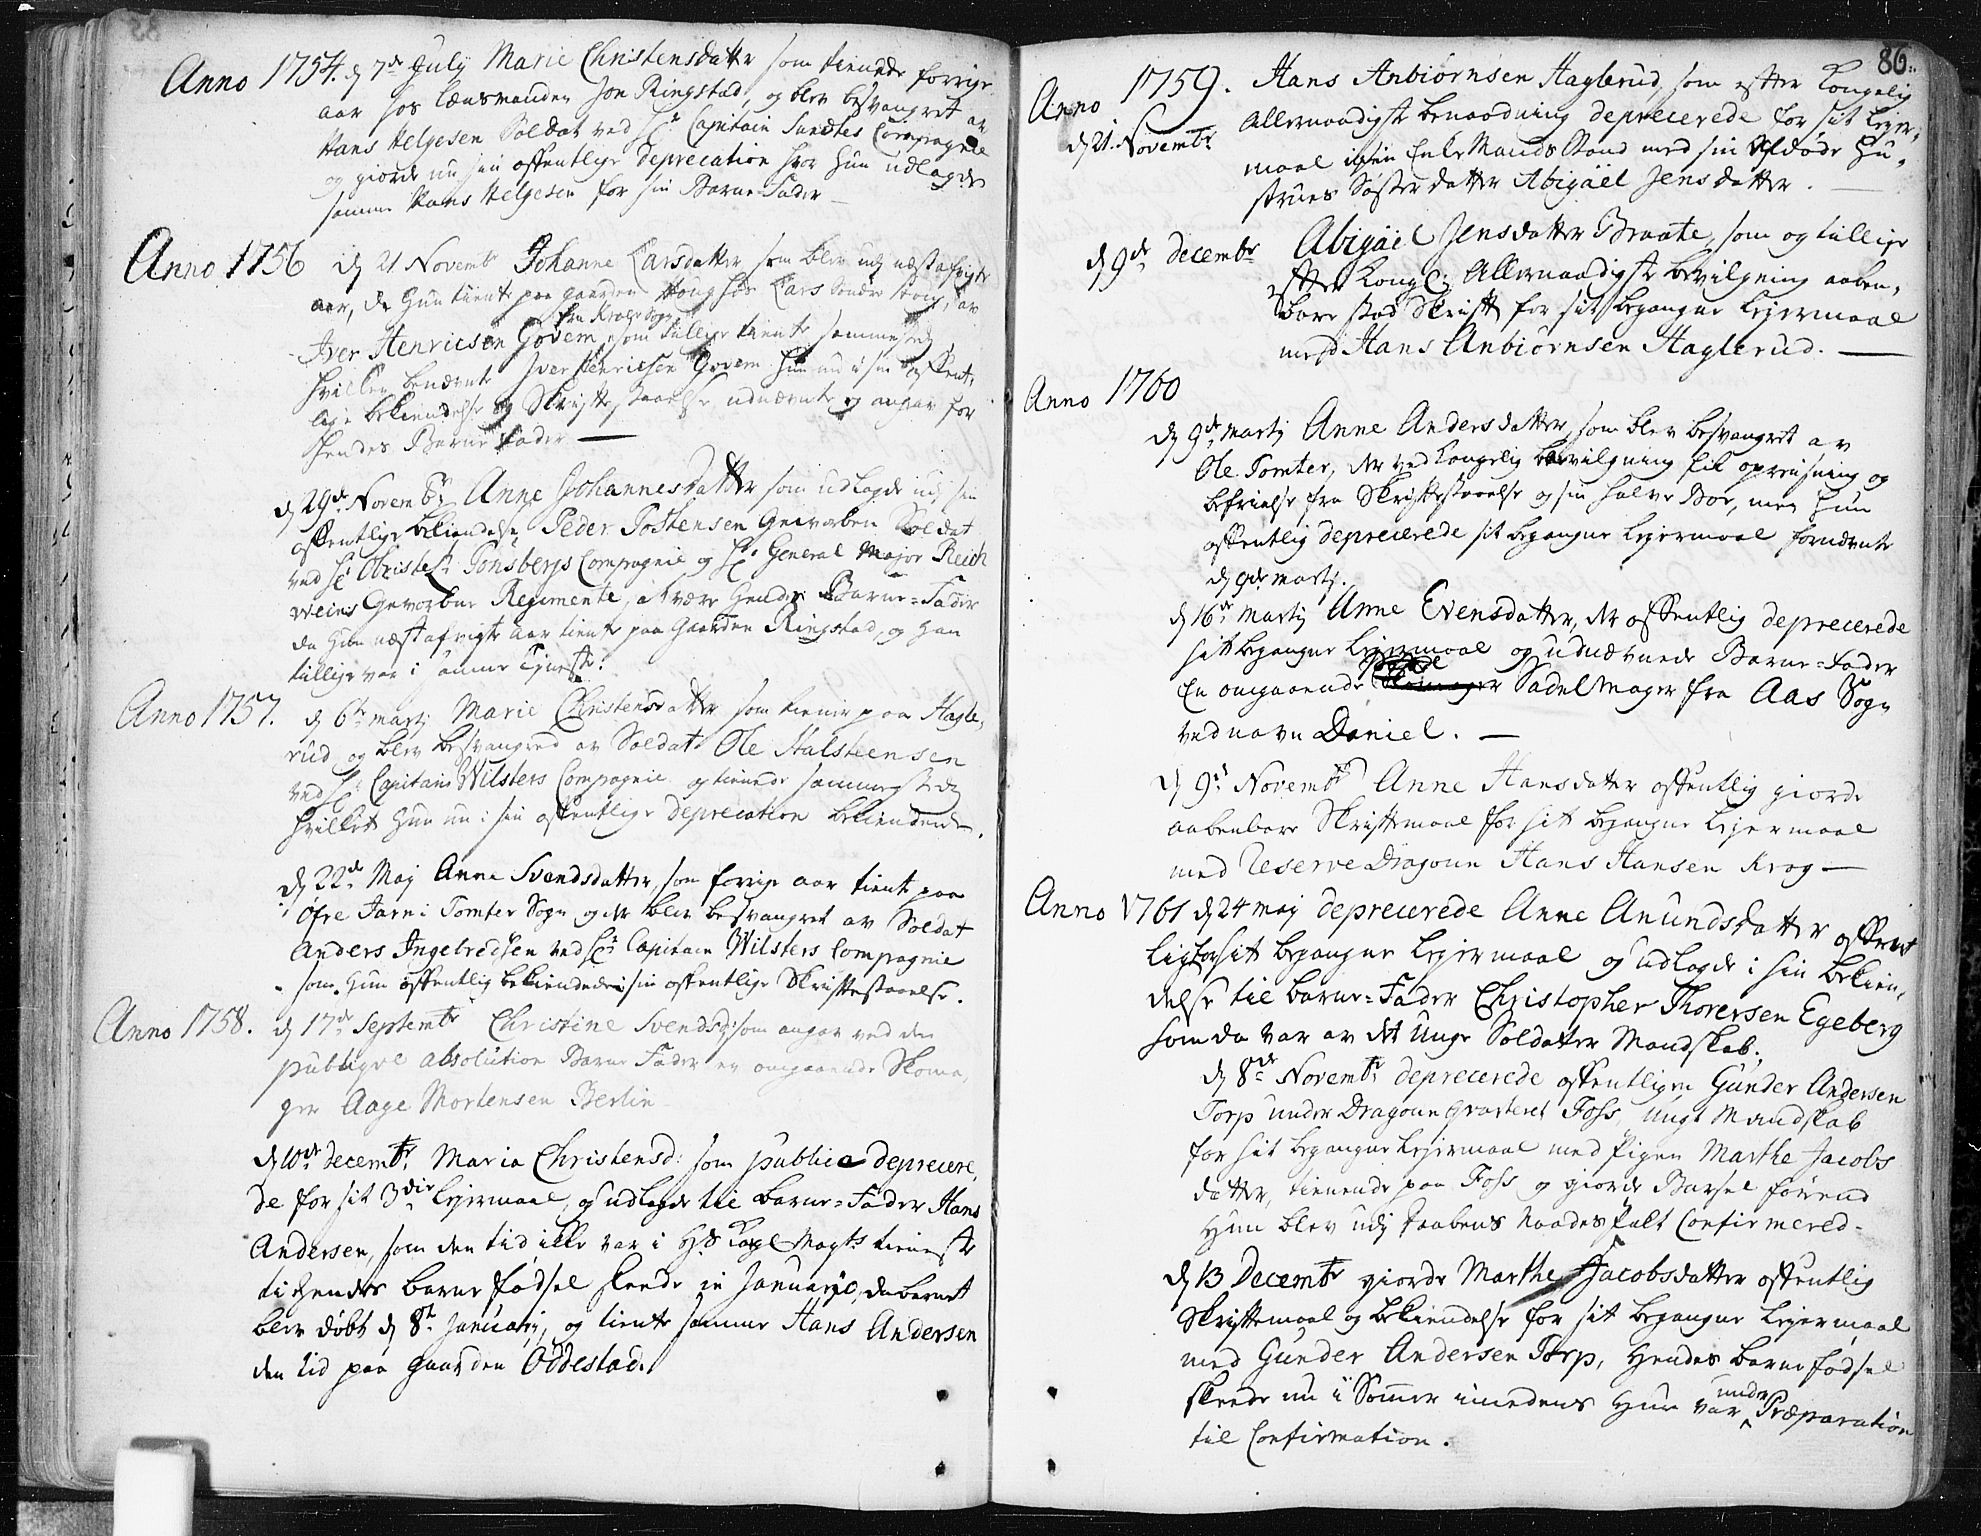 Anno 1754. d 7de July Marie Christensdatter som tiente forrige
aar hos Lensmanden Jon Ringstad, og blev besvangret av
Hans Helgesen Soldat ved Hr Capitain Sundtes Compagnie
og giorde nu sin offentlige deprecation hvor hun udlagde
samme Hans Helgesen for sin Barne-Fader
Anno 1756 d 21 Novembr Johanne Larsdatter som blev udj næstafvigte
aar, da Hun tiente paa gaarden Houg hos Lars Søndre Houg, av
fra Kroer Sogn
Iver Henricsen Govem, som tillige tiente sammested
hvilken benævnte Iver Henricsen Govem hun nu i sin offent-
lige bekiendelse og Skriftestaaelse udnævnte og angav for
Hendes Barne Fader
d 29de Novembr Anne Johannesdatter som udlagde udj sin
offentlige bekiendelse Peder Tostensen Gevorben Soldat
ved Hr Obristel: Tonsbergs Compagnie og Hr General Major Reich
weins Gevorbne Regimente, at være Hendes Barne-Fader
da Hun næstafvigte aar tiente paa Gaarden Ringstad, og Han
tillige var i samme Tjeneste.
Anno 1757. d 6te martj Marie Christensdatter som tiener paa Hagle-
rud og blev besvangred av Soldat Ole Halsteensen
ved Hr Capitain Wilsters Compagnie og tienende sammested
hvilket Hun nu i sin offentlige deprecation bekiendede.
d 22de Maj Anne Svendsdatter, som forrige aar tiente paa
Øfre Jarn i Tomter Sogn og der blev besvangret av Soldat
Anders Ingebredsen ved Hr Capitain Wilsters Compagnie
som Hun offentlig bekiendede i sin offentlige Skriftestaaelse.
Anno 1758. d 17de Septembr Christine Svendsd: som angav ved den
publique absolution Barne Fader en omgaaende Skoma-
ger Aage Mortensen Berlin
d 10de decembr Maria Christensd: som publice deprecere-
de for sit 3die Lejermaal, og udlagde til Barne-Fader Hans
Andersen, som den tid ikke var i Hs Kogl Mayts tieneste
ti Hendes barne fødsel skeede in Januario, da barnet
blev døbt d 8de Januarij, og tiente samme Hans Andersen
den tid paa gaarden Oddestad.
86.
Anno 1759. Hans Anbiørnsen Haglerud, som efter Kongelig
d 21. Novembr allernaadigste benaadning deprecerede for sit lejer-
maal i sin EnkeMands Stand med sin Afdøde Hu-
strues Søster datter Abigael Jensdatter.
d 9de decembr Abigael Jensdatter Braate, som og tillige
efter Kongel: Allernaadigste bevilgning aaben-
bare stod Skrift for sit begangne Lejermaal
med Hans Anbiørnsen Haglerud.
Anno 1760
d 9de Martj Anne Andersdatter, som blev besvangret av
Ole Tomter, der ved Kongelig bevilgning fik opreisning og
befrielse fra Skriftestaaelse og sin halve Bod, men Hun
offentlig deprecerede sit begangne Lejermaal fornævnte
d 9de martj.
d 16de martj Anne Evensdatter, der offentlig deprecerede
sit begangne Lejermaal og udnævnede Barne-Fader
En omgaaende Sadelmager fra Aas Sogn
ved navn Daniel.
d 9de Novembr Anne Hansdatter offentlig giorde
aabenbare Skriftemaal for sit begangne Lejermaal
med Reserve Dragoun Hans Hansen Krog
Anno 1761 d 24 maj deprecerede Anne Anundsdatter offent
lig for sit begangne Lejermaal og udlagde i sin bekien-
delse til barne-Fader Christopher Thoresen Egeberg
som da var av det Unge Soldatter Mandskab.
d 8de Novembr deprecerede offentligen Gunder Andersen
Torp under Dragoun qvarteret Foss, ungt Mandskab
for sit begangne Lejermaal med Pigen Marthe Jacobs
datter, tienende paa Foss og giorde Barsel førend
Hun blev udj Daabens Naades Palt Confirmered
d 13 Decembr giorde Marthe Jacobsdatter offentlig
Skriftemaal og bekiendelse for sit begangne Lejermaal
med Gunder Andersen Torp, Hendes barnefødsel
skeede nu i Sommer imedens Hun var under Præparation
til Confirmation.